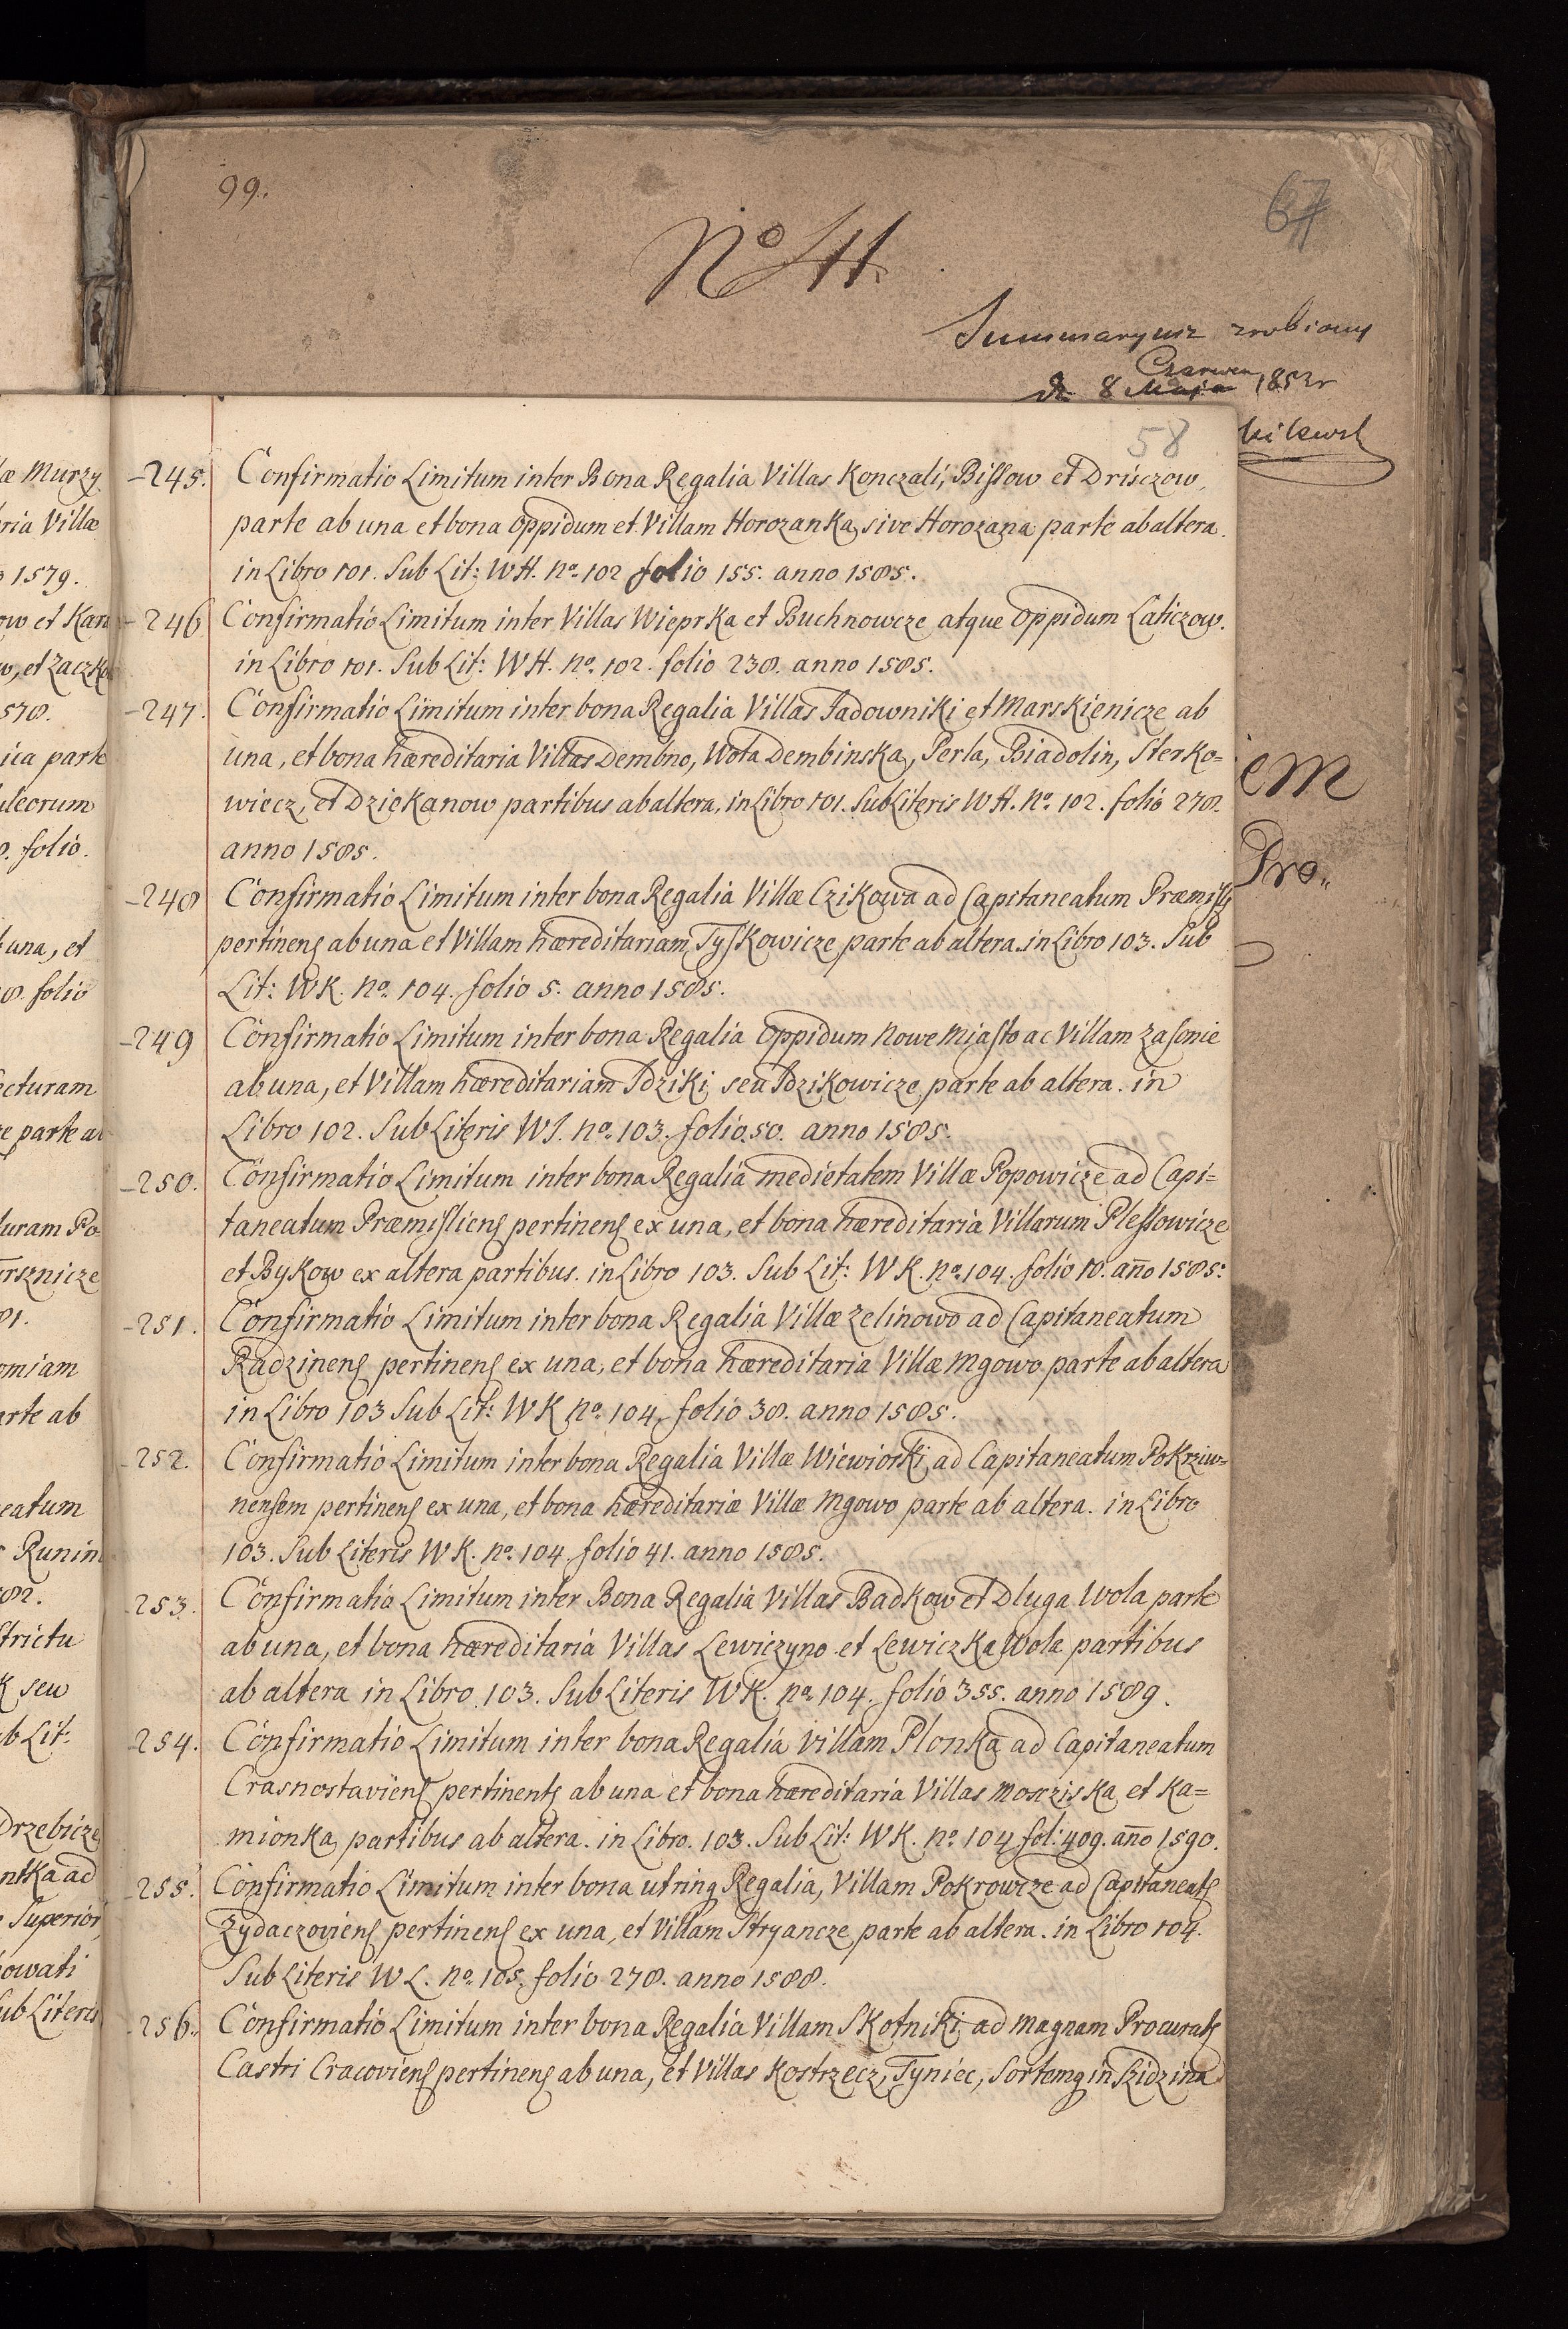 99.
67
No 44
Summaryusz zrobiony
Czerwca
d. 8 Maja 1852r
58
245. Confirmatio Limitum inter Bona Regalia Villas Konczali, Bissow et Drisczow,
parte ab una et bona oppidum et Villam Horozanka sive Horozana parte ab altera.
in Libro 101. Sub Lit: WH. No. 102 folio 155. anno 1585.
246 Confirmatio Limitum inter Villas Wieprka et Buchnowcze atque Oppidum Laticzow.
in Libro 101. Sub Lit: WH. No. 102. folio 238. anno 1585.
247. Confirmatio Limitum inter bona Regalia Villas Jadowniki et Marskienicze ab
una, et bona hæreditaria Villas Dembno, Wola Dembinska, Perla, Biadolin, Sterko=
wiecz, et Dziekanow partibus ab altera, in Libro 101. Sub Literis WH. No. 102. folio 278.
anno 1585.
248 Confirmatio Limitum inter bona Regalia Villæ Czikowa ad Capitaneatum Præmisl
pertinens ab una et Villam hæreditariam Tyskowicze parte ab altera. in Libro 103. Sub
Lit: WK. No. 104. folio 5. anno 1585.
249 Confirmatio Limitum inter bona Regalia Oppidum Nowe Miasto ac Villam Zasonie
ab una, et Villam hæreditariam Jdziki seu Jdzikowicze parte ab altera. in
Libro 102. Sub Literis WJ. No. 103. folio. 50. anno 1585.
250. Confirmatio Limitum inter bona Regalia medietatem Villæ Popowicze ad Capi=
taneatum Præmisliens pertinens ex una, et bona hæreditaria Villarum Plessowicze
et Bykow ex altera partibus. in Libro 103. Sub Lit: WK. No. 104. folio 10. año 1585.
251. Confirmatio Limitum inter bona Regalia Villæ Zelinowo ad Capitaneatum
Radzinens pertinens ex una, et bona hæreditaria Villæ Mgowo parte ab altera
in Libro 103 Sub Lit: WK No. 104. folio 38. anno 1585.
252. Confirmatio Limitum inter bona Regalia Villæ Wiewiorki ad Capitaneatum Pokrziw=
nensem pertinens ex una, et bona hæreditariæ Villæ Mgowo parte ab altera. in Libro
103. Sub Literis WK. No. 104. folio 41. anno 1585.
253. Confirmatio Limitum inter Bona Regalia Villas Badkow et Dluga Wola parte
ab una, et bona hæreditaria Villas Lewiczyno et Lewiczka Wola partibus
ab altera in Libro 103. Sub Literis WK. No. 104. folio 355. anno 1589.
254. Confirmatio Limitum inter bona Regalia Villam Plonka ad Capitaneatum
Crasnostaviens pertinents ab una et bona hæreditaria Villas Mosciska et Ka=
mionka partibus ab altera. in Libro. 103. Sub Lit: WK. No. 104 fol: 409. año 1590.
255. Confirmatio Limitum inter bona utrinq Regalia, Villam Pokrowcze ad Capitaneats
Zydaczoviens pertinens ex una, et Villam Stryancze parte ab altera. in Libro 104.
Sub Literis WL. No. 105. folio 278. anno 1588.
256. Confirmatio Limitum inter bona Regalia Villam Skotniki ad magnam Procurats
Castri Cracoviens pertinens ab una, et Villas Kostrzecz, Tyniec, Sortemq in Szidzina